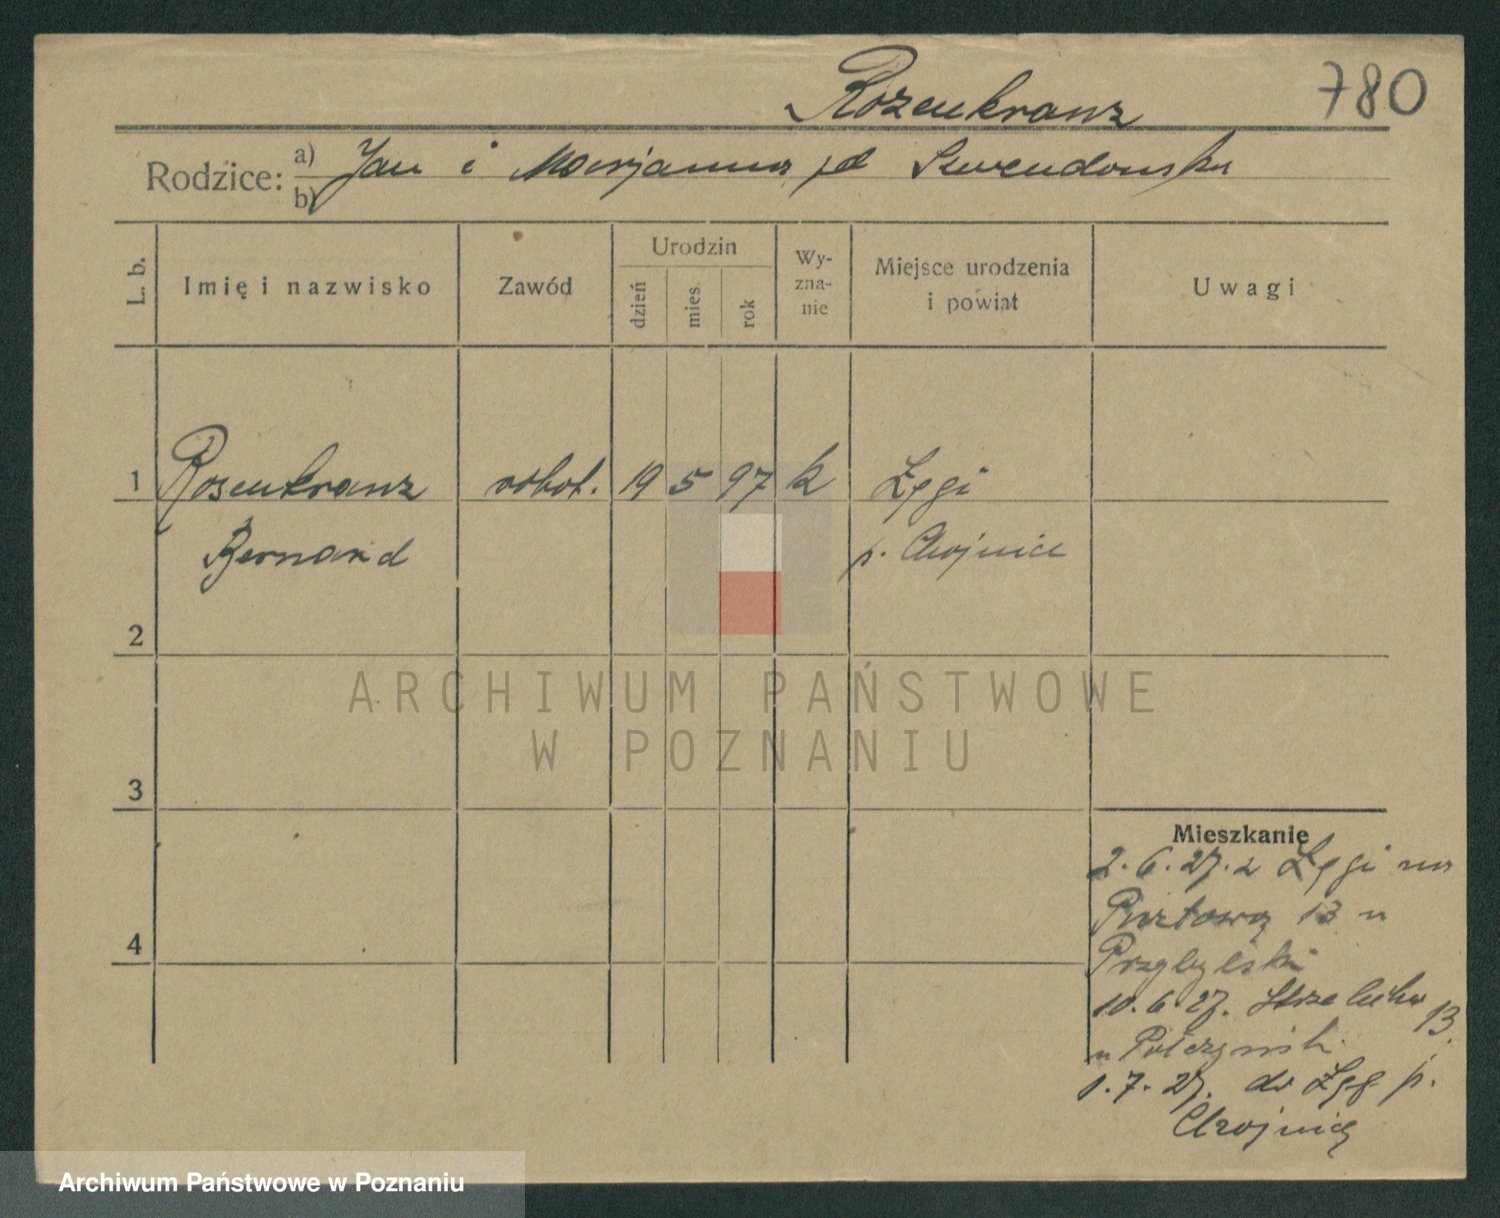 780
Rozenkranz
Rodzice: a) Jan i Marjanna zd
b)
L. b. Imię i nazwisko Zawód Urodzin dzień mies. rok Wyznanie Miejsce urodzenia i powiat Uwagi
1 Rosenkranz robot. 19 5 97 k Łęgi
Bernard p. Chojnice
2
3
4
Mieszkanie
2.6.27. z Łęgi na
13 u
Przybylski
10.6.27. Strzelecka 13
u
1.7.27. do Łęg p.
Chojnice
ARCHIWUM PAŃSTWOWE
W POZNANIU
Archiwum Państwowe w Poznaniu